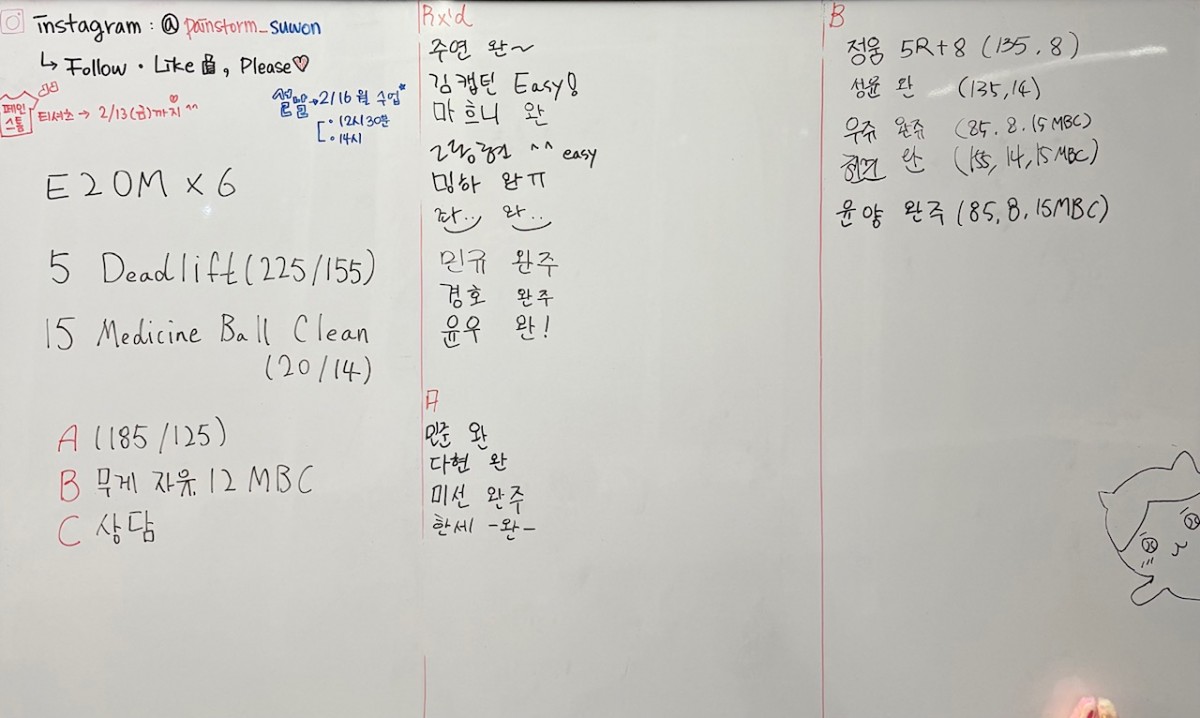 instagram : @painstorm_suwon
↳ Follow · Like, Please♡
페인
스톰
티셔츠 → 2/13(금)까지 ^^
설날 → 2/16 월 수업*
· 12시 30분
· 14시
E20M x 6
5 Deadlift (225/155)
15 Medicine Ball Clean
(20/14)
A (185/125)
B 무게 자유. 12 MBC
C 상담
Rx'd
주연 완~
김캡틴 Easy!
마흐니 완
^^ easy
밍하 완ㅠ
완..
민규 완주
경호 완주
윤우 완!
A
민준 완
다현 완
미선 완주
한세 -완-
B
정웅 5R+8 (135, 8)
성윤 완 (135, 14)
우쥬 완쥬 (85. 8. 15MBC)
완 (155, 14, 15MBC)
윤양 완주 (85, 8, 15MBC)